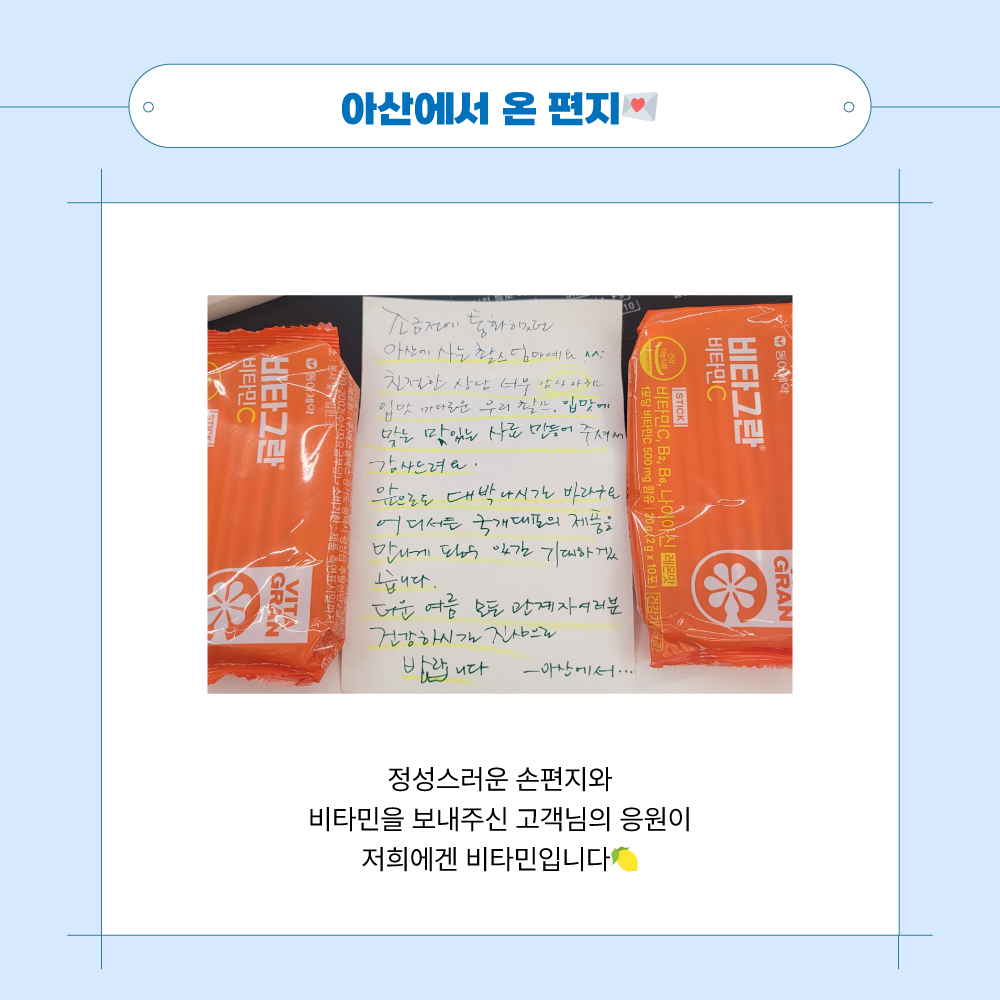 아산에서 온 편지💌
조금전에 통화했던
아산에 사는 찰스 엄마예요 ^^:
친절한 상담 너무 감사하고
입맛 까다로운 우리 찰쓰. 입맛에
맞는 맛있는 사료 만들어 주셔서
감사드려요.
앞으로도 대박나시길 바라구요
어디서든 국개대표의 제품을
만나게 되길
기대하겠
습니다.
더운 여름 모든 관계자여러분
건강하시길 진심으로
바랍니다 -아산에서...
동아제약
비타그란
비타민C
STICK
VITA
GRAN
동아제약
비타그란
비타민C
STICK
비타민C, B2, B6, 나이아신
1포당 비타민C 500 mg 함유 | 20 g (2 g x 10포)
레몬맛
GRAN
정성스러운 손편지와
비타민을 보내주신 고객님의 응원이
저희에겐 비타민입니다🍋